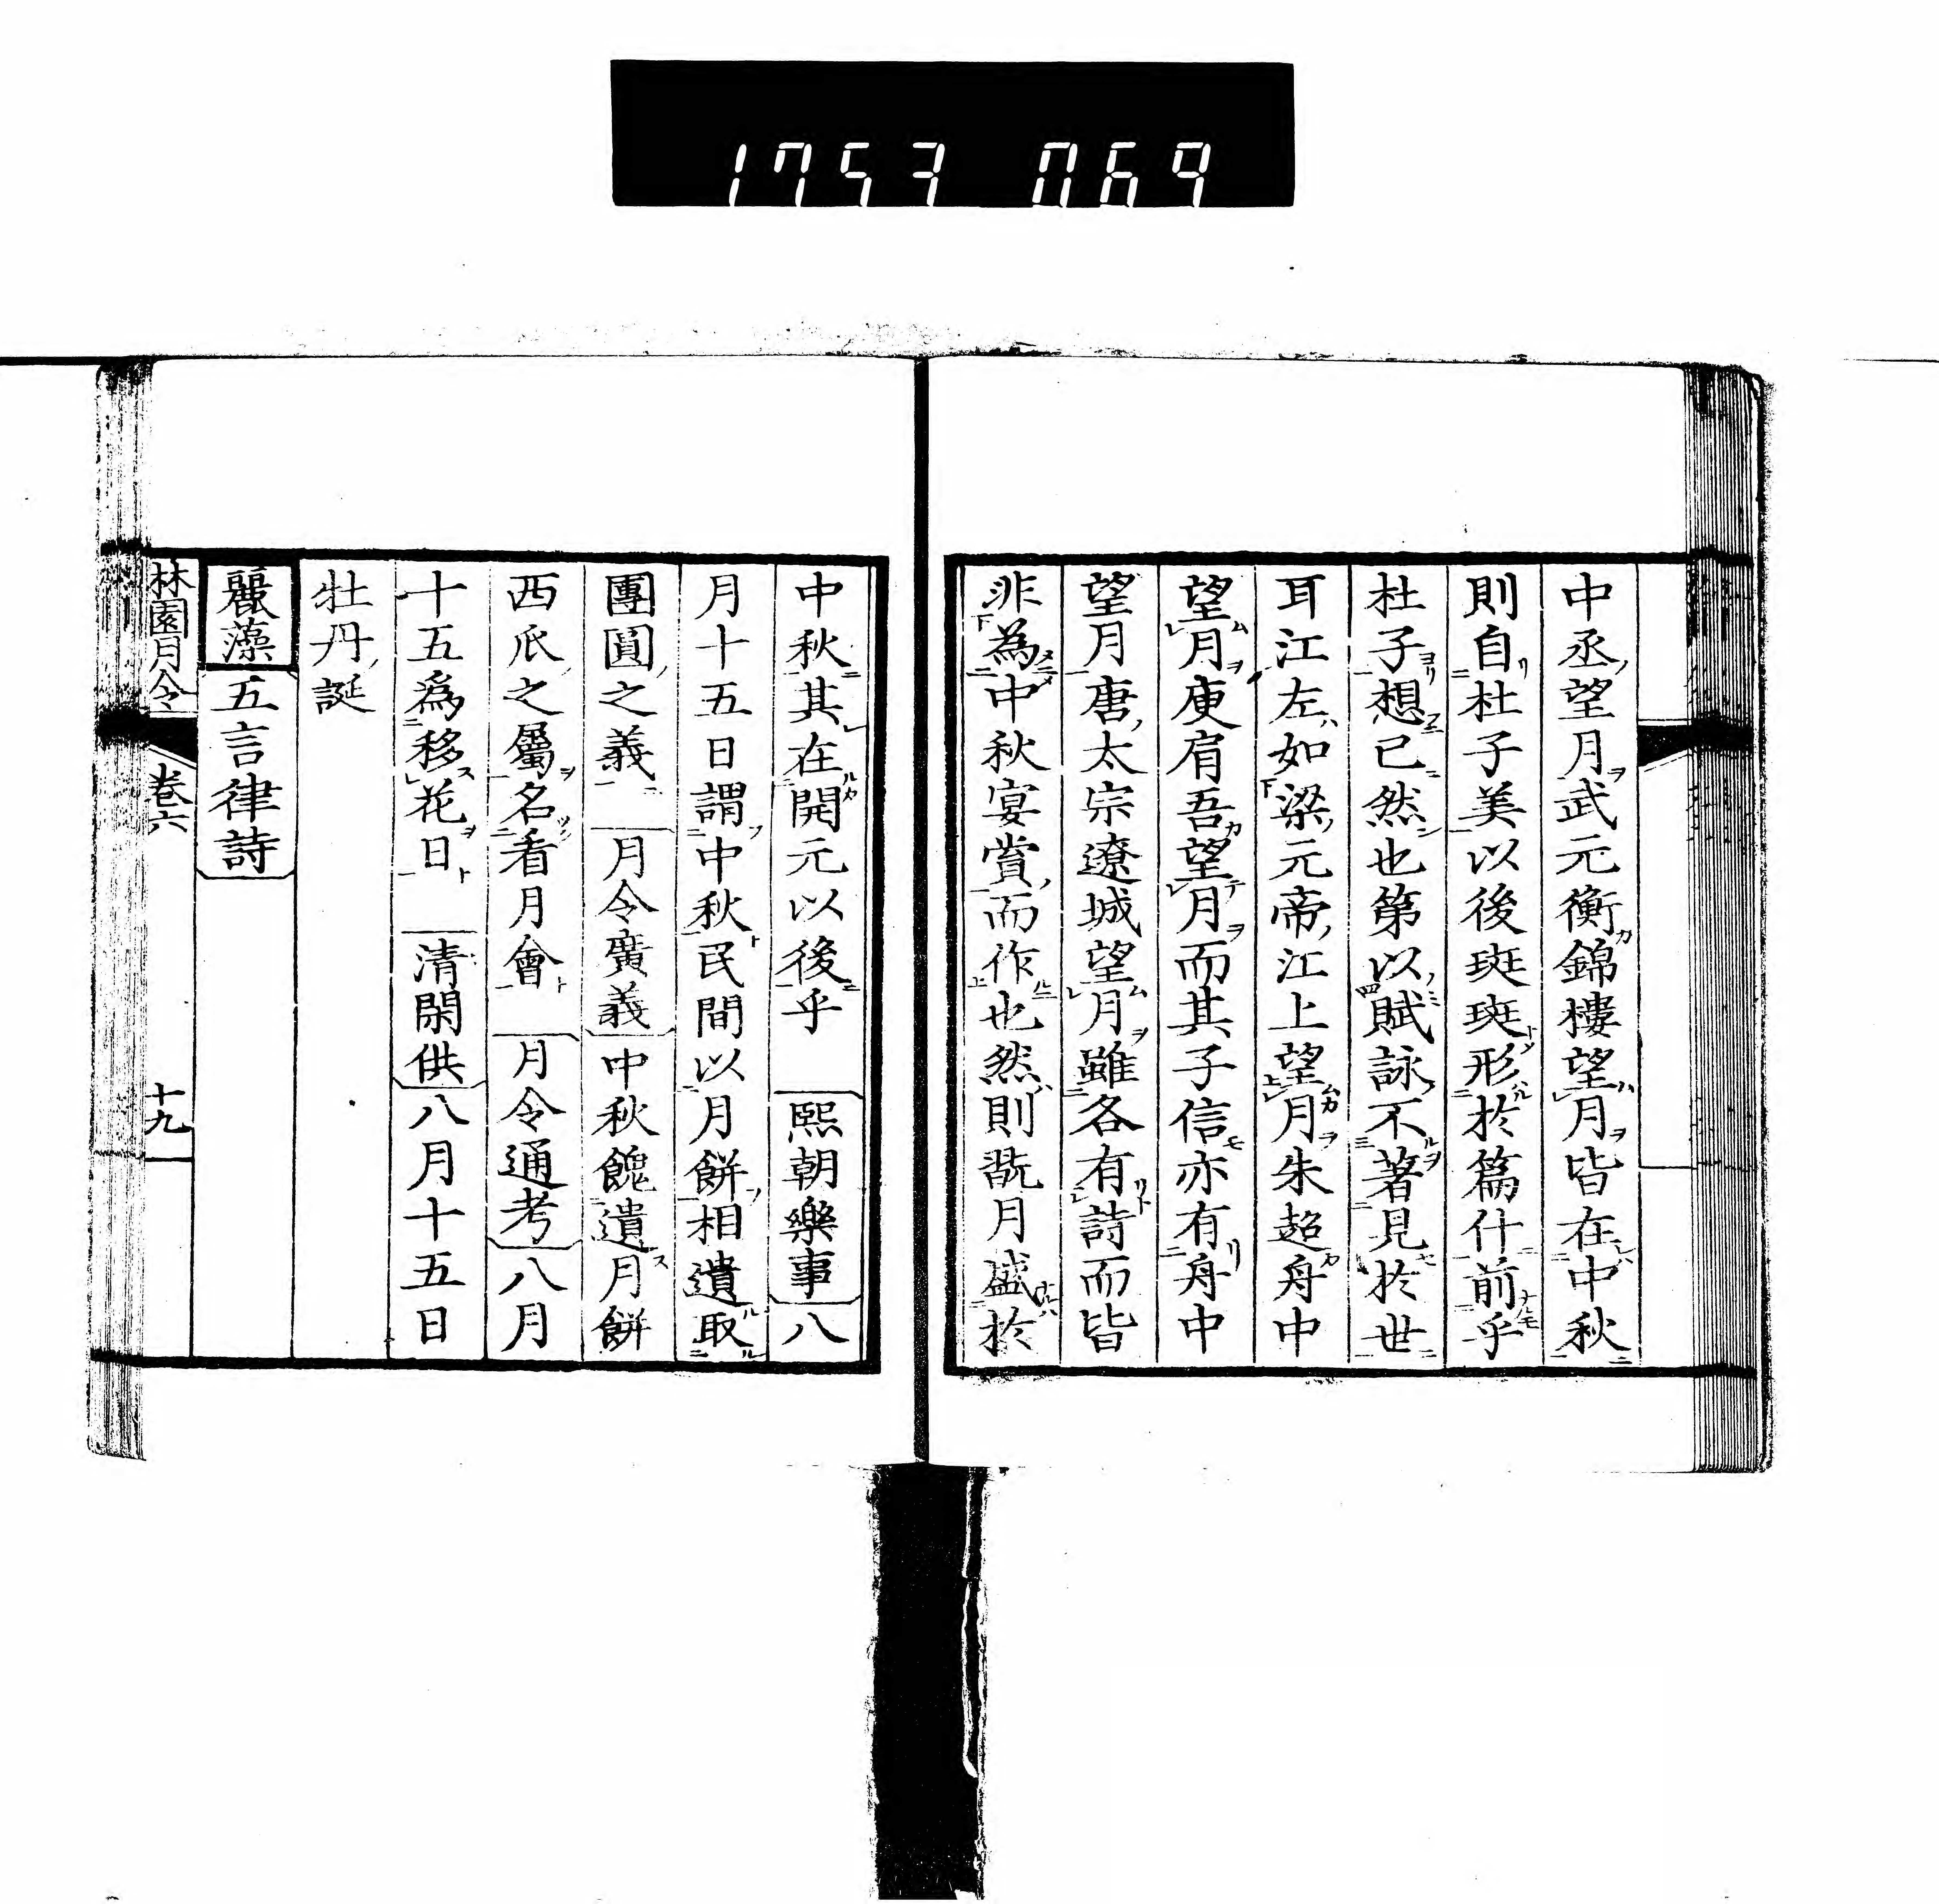 1753 069
中丞望月武元衡錦樓望月皆在中秋
則自杜子美以後斑斑形於篇什前乎
杜子想已然也第以賦詠不著見於世
耳江左如梁元帝江上望月朱超舟中
望月庾肩吾望月而其子信亦有舟中
望月唐太宗遼城望月雖各有詩而皆
非為中秋宴賞而作也然則翫月盛於
中秋其在開元以後乎 熙朝樂事 八
月十五日謂中秋民間以月餅相遺取
團圓之義 月令廣義 中秋餽遺月餅
西瓜之屬名看月會 月令通考 八月
十五爲移花日 清閑供 八月十五日
牡丹誕
麗藻 五言律詩
林園月令 卷六 十九